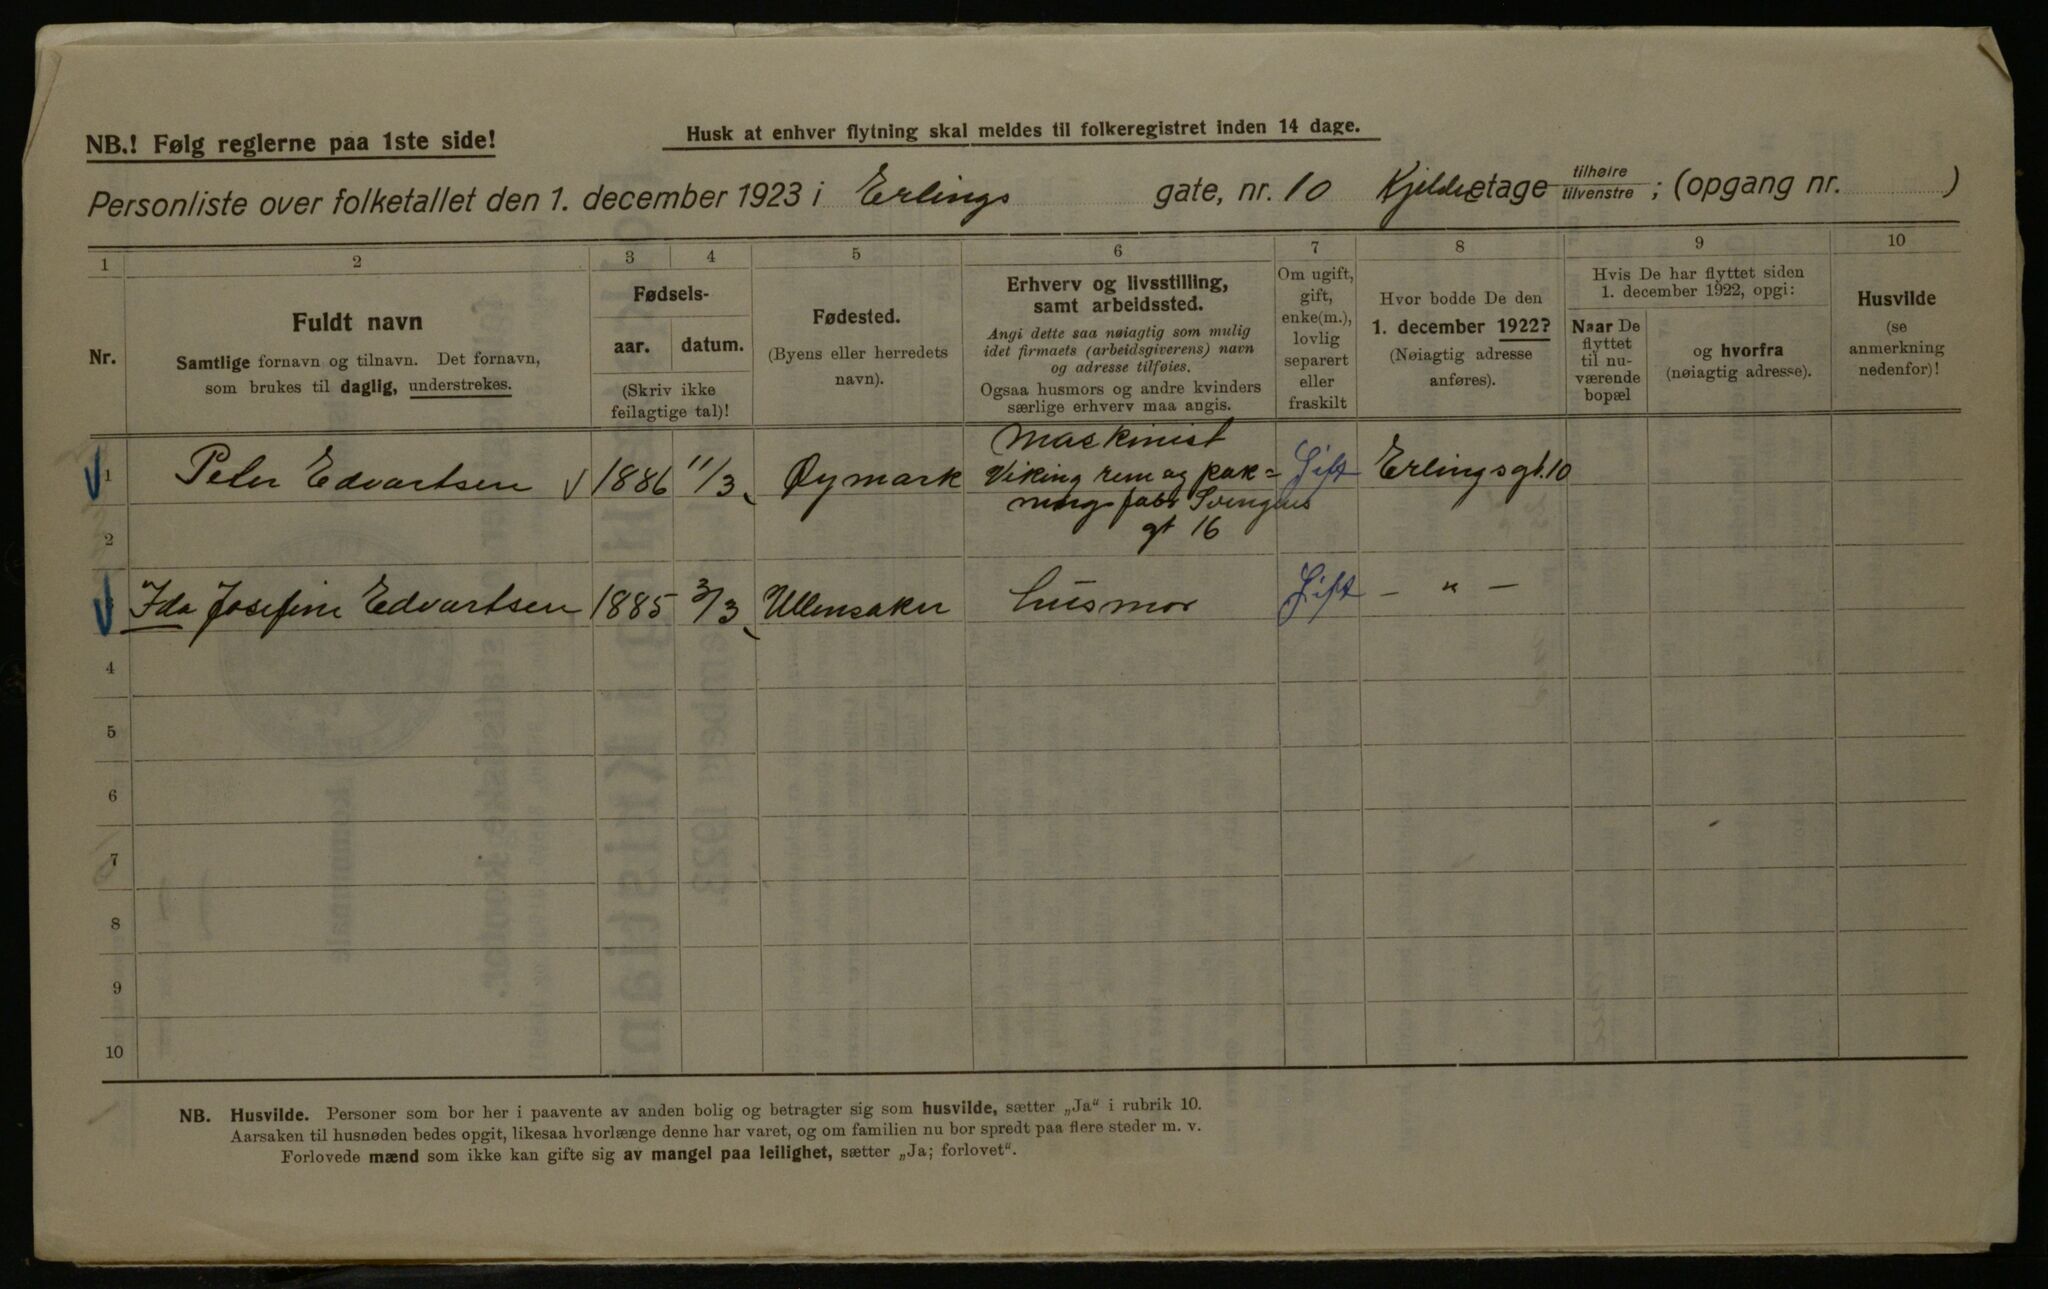 NB.! Følg reglerne paa 1ste side!
Husk at enhver flytning skal meldes til folkeregistret inden 14 dage.
Personliste over folketallet den 1. december 1923 i Erlings gate, nr. 10 Kjelderetage tilhøire tilvenstre ; (opgang nr. )
1 2 3 4 5 6 7 8 9 10
Nr.
Fuldt navn
Samtlige fornavn og tilnavn. Det fornavn,
som brukes til daglig, understrekes.
Fødsels-
aar. datum.
(Skriv ikke
feilagtige tal)!
Fødested.
(Byens eller herredets
navn).
Erhverv og livsstilling,
samt arbeidssted.
Angi dette saa nøiagtig som mulig
idet firmaets (arbeidsgiverens) navn
og adresse tilføies.
Ogsaa husmors og andre kvinders
særlige erhverv maa angis.
Om ugift,
gift,
enke(m.),
lovlig
separert
eller
fraskilt
Hvor bodde De den
1. december 1922?
(Nøiagtig adresse
anføres).
Hvis De har flyttet siden
1. december 1922, opgi:
Naar De
flyttet
til nu-
værende
bopæl
og hvorfra
(nøiagtig adresse).
Husvilde
(se
anmerkning
nedenfor)!
1 Peter Edvartsen 1886 11/3 Øymark Maskinist Gift Erlingsgt. 10
Viking rem og pak=
nings fabr
gt 16
2
Ida Josefine Edvartsen 1885 3/3 Ullensaker husmor Gift — „ —
4
5
6
7
8
9
10
NB. Husvilde. Personer som bor her i paavente av anden bolig og betragter sig som husvilde, sætter „Ja“ i rubrik 10.
Aarsaken til husnøden bedes opgit, likesaa hvorlænge denne har varet, og om familien nu bor spredt paa flere steder m. v.
Forlovede mænd som ikke kan gifte sig av mangel paa leilighet, sætter „Ja; forlovet“.